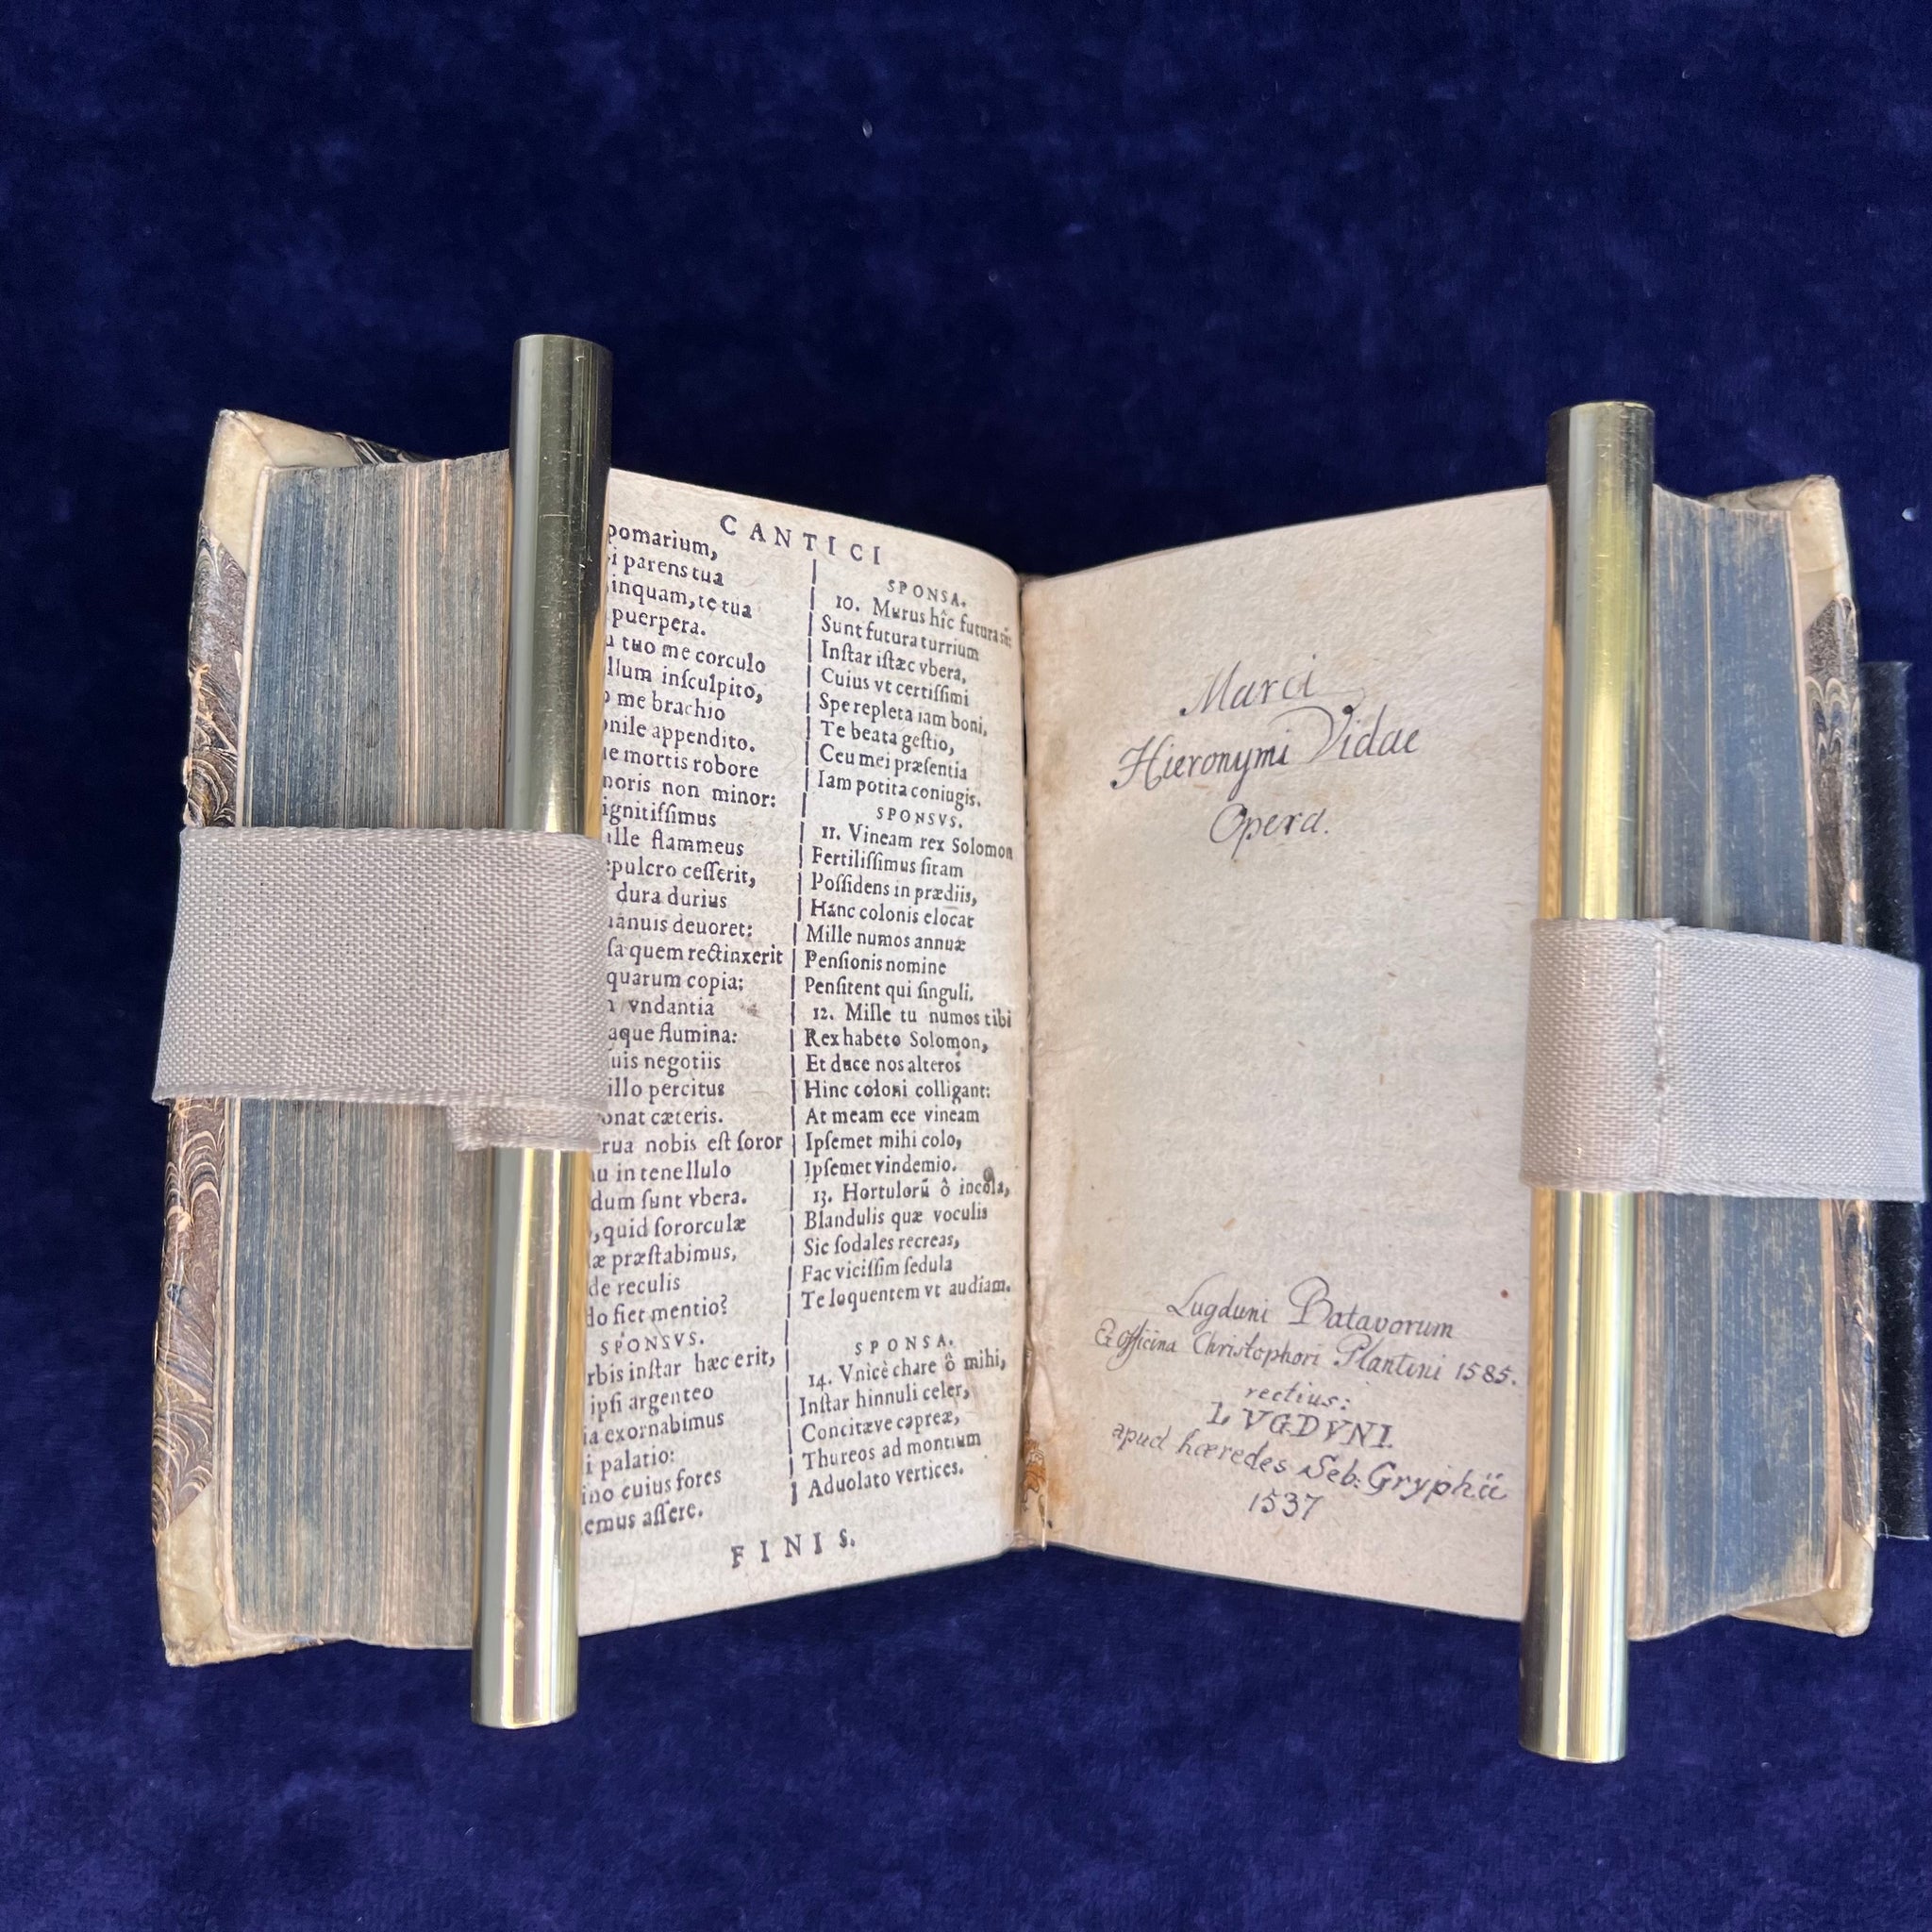 CANTICI
pomarium,
i parens tua
inquam, te tua
puerpera.
tuo me corculo
insculpito,
me brachio
appendito.
mortis robore
non minor:
ille flammeus
cesserit,
dura durius
deuoret:
quem rectinxerit
quarum copia:
vndantia
aque flumina:
negotiis
percitus
cæteris.
nobis est soror
in tenellulo
sunt vbera.
quid sororculæ
præstabimus,
de reculis
fiet mentio?
SPONSVS.
instar hæc erit,
ipsi argenteo
exornabimus
palatio:
cuius fores
assere.
SPONSA.
10. Murus hîc futura
Sunt futura turrium
Instar istæc vbera,
Cuius vt certissimi
Spe repleta iam boni,
Te beata gestio,
Ceu mei præsentia
Iam potita coniugis.
SPONSVS.
11. Vineam rex Solomon
Fertilissimus sitam
Possidens in prædiis,
Hanc colonis elocat
Mille numos annuæ
Pensionis nomine
Pensitent qui singuli.
12. Mille tu numos tibi
Rex habeto Solomon,
Et duce nos alteros
Hinc coloni colligant:
At meam ece vineam
Ipsemet mihi colo,
Ipsemet vindemio.
13. Hortulorũ ô incola,
Blandulis quæ voculis
Sic sodales recreas,
Fac vicissim sedula
Te loquentem vt audiam.
SPONSA.
14. Vnicè chare ô mihi,
Instar hinnuli celer,
Concitæve capreæ,
Thureos ad montium
Aduolato vertices.
FINIS.
Marci
Hieronymi Vidae
Opera.
Lugduni Batavorum
Ex officina Christophori Plantini 1585.
rectius:
LVGDVNI.
apud hæredes Seb: Gryphii
1537